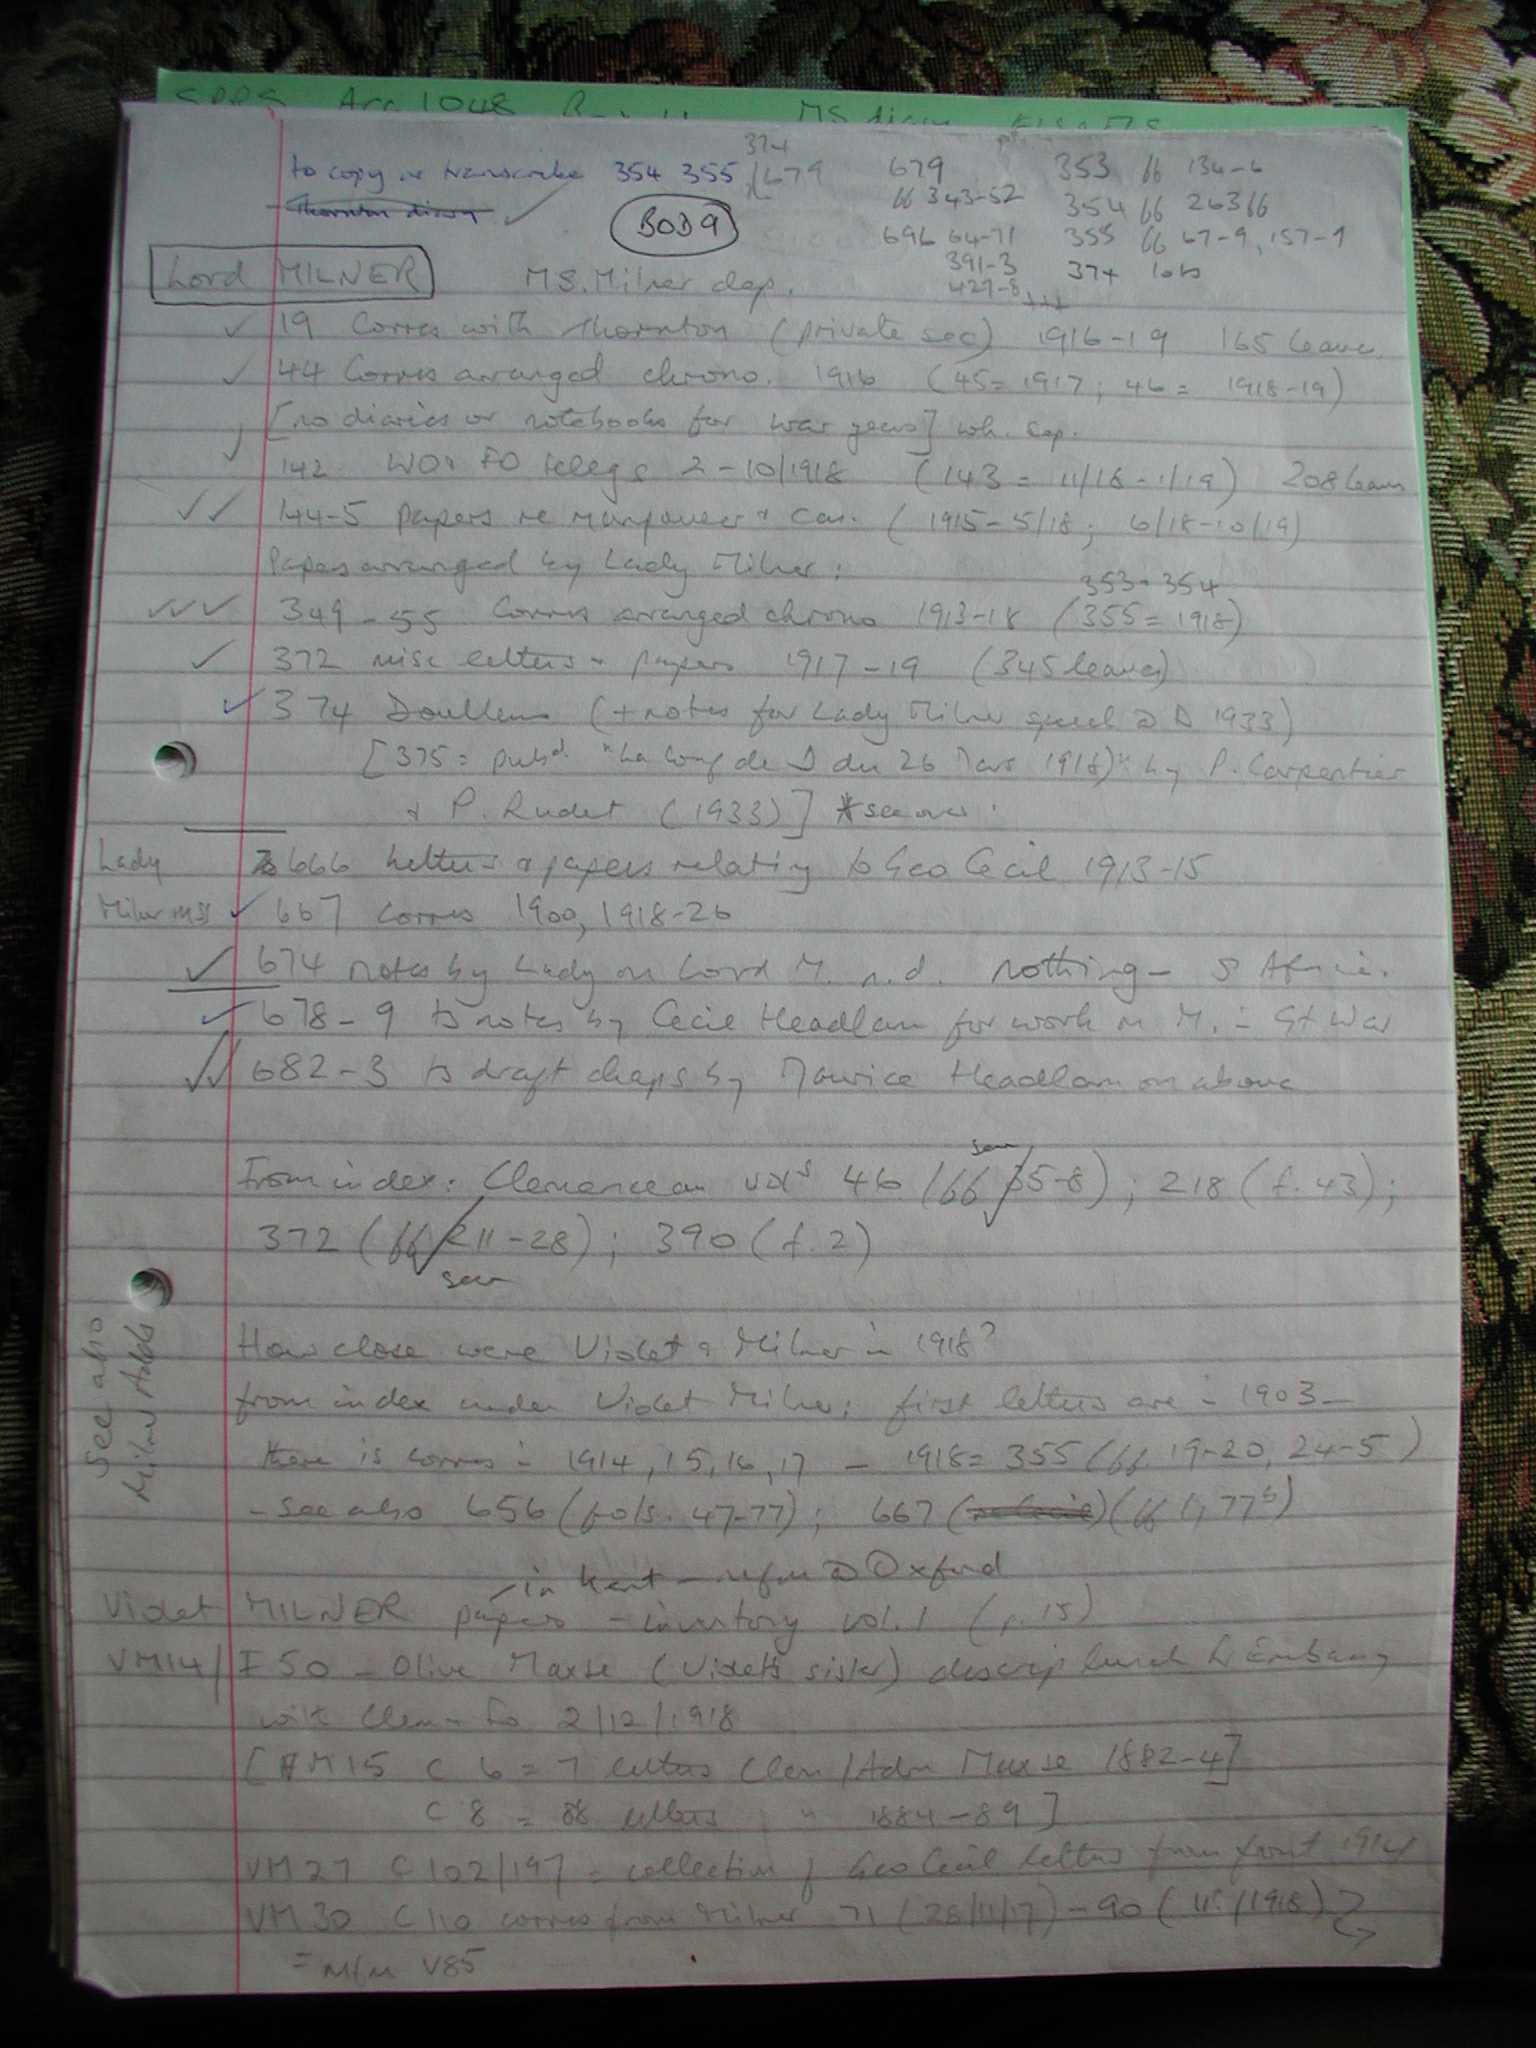 to copy or transcribe 354 355 / 679
374
Thornton diary
BOD 9
679
ff 343-52
696 64-71
391-3
427-8
353 ff 134-6
354 ff 263 ff
355 ff 67-9, 157-9
374 lots
Lord MILNER MS. Milner dep.
19 Corres with Thornton (private sec) 1916-19 165 leaves
44 Corres arranged chrono. 1916 (45=1917; 46= 1918-19)
[no diaries or notebooks for war years]
142 WO & FO telegs 2-10/1918 (143 = 11/18-1/19) 208 leaves
144-5 papers re manpower & cas. (1915-5/18; 6/18-10/19)
Papers arranged by Lady Milner:
353-354
349-55 Corres arranged chrono 1913-18 (355=1918)
372 misc letters & papers 1917-19 (345 leaves)
374 Doullens (+ notes for Lady Milner speech @ D 1933)
[375 = pubd. "La Conf de D du 26 Mars 1918" by P. Carpentier
& P. Rudet (1933)] * see over
Lady 666 Letters & papers relating to Geo Cecil 1913-15
Milner mss 667 corres 1900, 1918-26
674 notes by Lady on Lord M. n.d. nothing - S Africa.
678-9 ts notes by Cecil Headlam for work on M. in Gt War
682-3 ts draft chaps by Maurice Headlam on above
seen
From index: Clemenceau vols 46 (ff 35-8); 218 (f. 43);
372 (ff 211-28); 390 (f. 2)
seen
See also
Milner Adds
How close were Violet & Milner in 1918?
from index under Violet Milner: first letters are in 1903 -
there is corres in 1914, 15, 16, 17 - 1918 = 355 (ff. 19-20, 24-5)
- see also 656 (fols. 47-77); 667 (ff 1, 77b)
in Kent - mfm @ Oxford
Violet MILNER papers - inventory vol. 1 (p. 15)
VM14/ F50 - Olive Maxse (Violet's sister) descrip lunch Br Embassy
with Clem & Fo 2/12/1918
[AM15 C 6 = 7 letters Clem/Adm Maxse 1882-4]
C 8 = 88 letters " 1884-89]
VM 27 C 102/197 = collection of Geo Cecil letters from front 1914
VM 30 C 110 corres from Milner 71 (28/11/17) - 90
= mfm V85